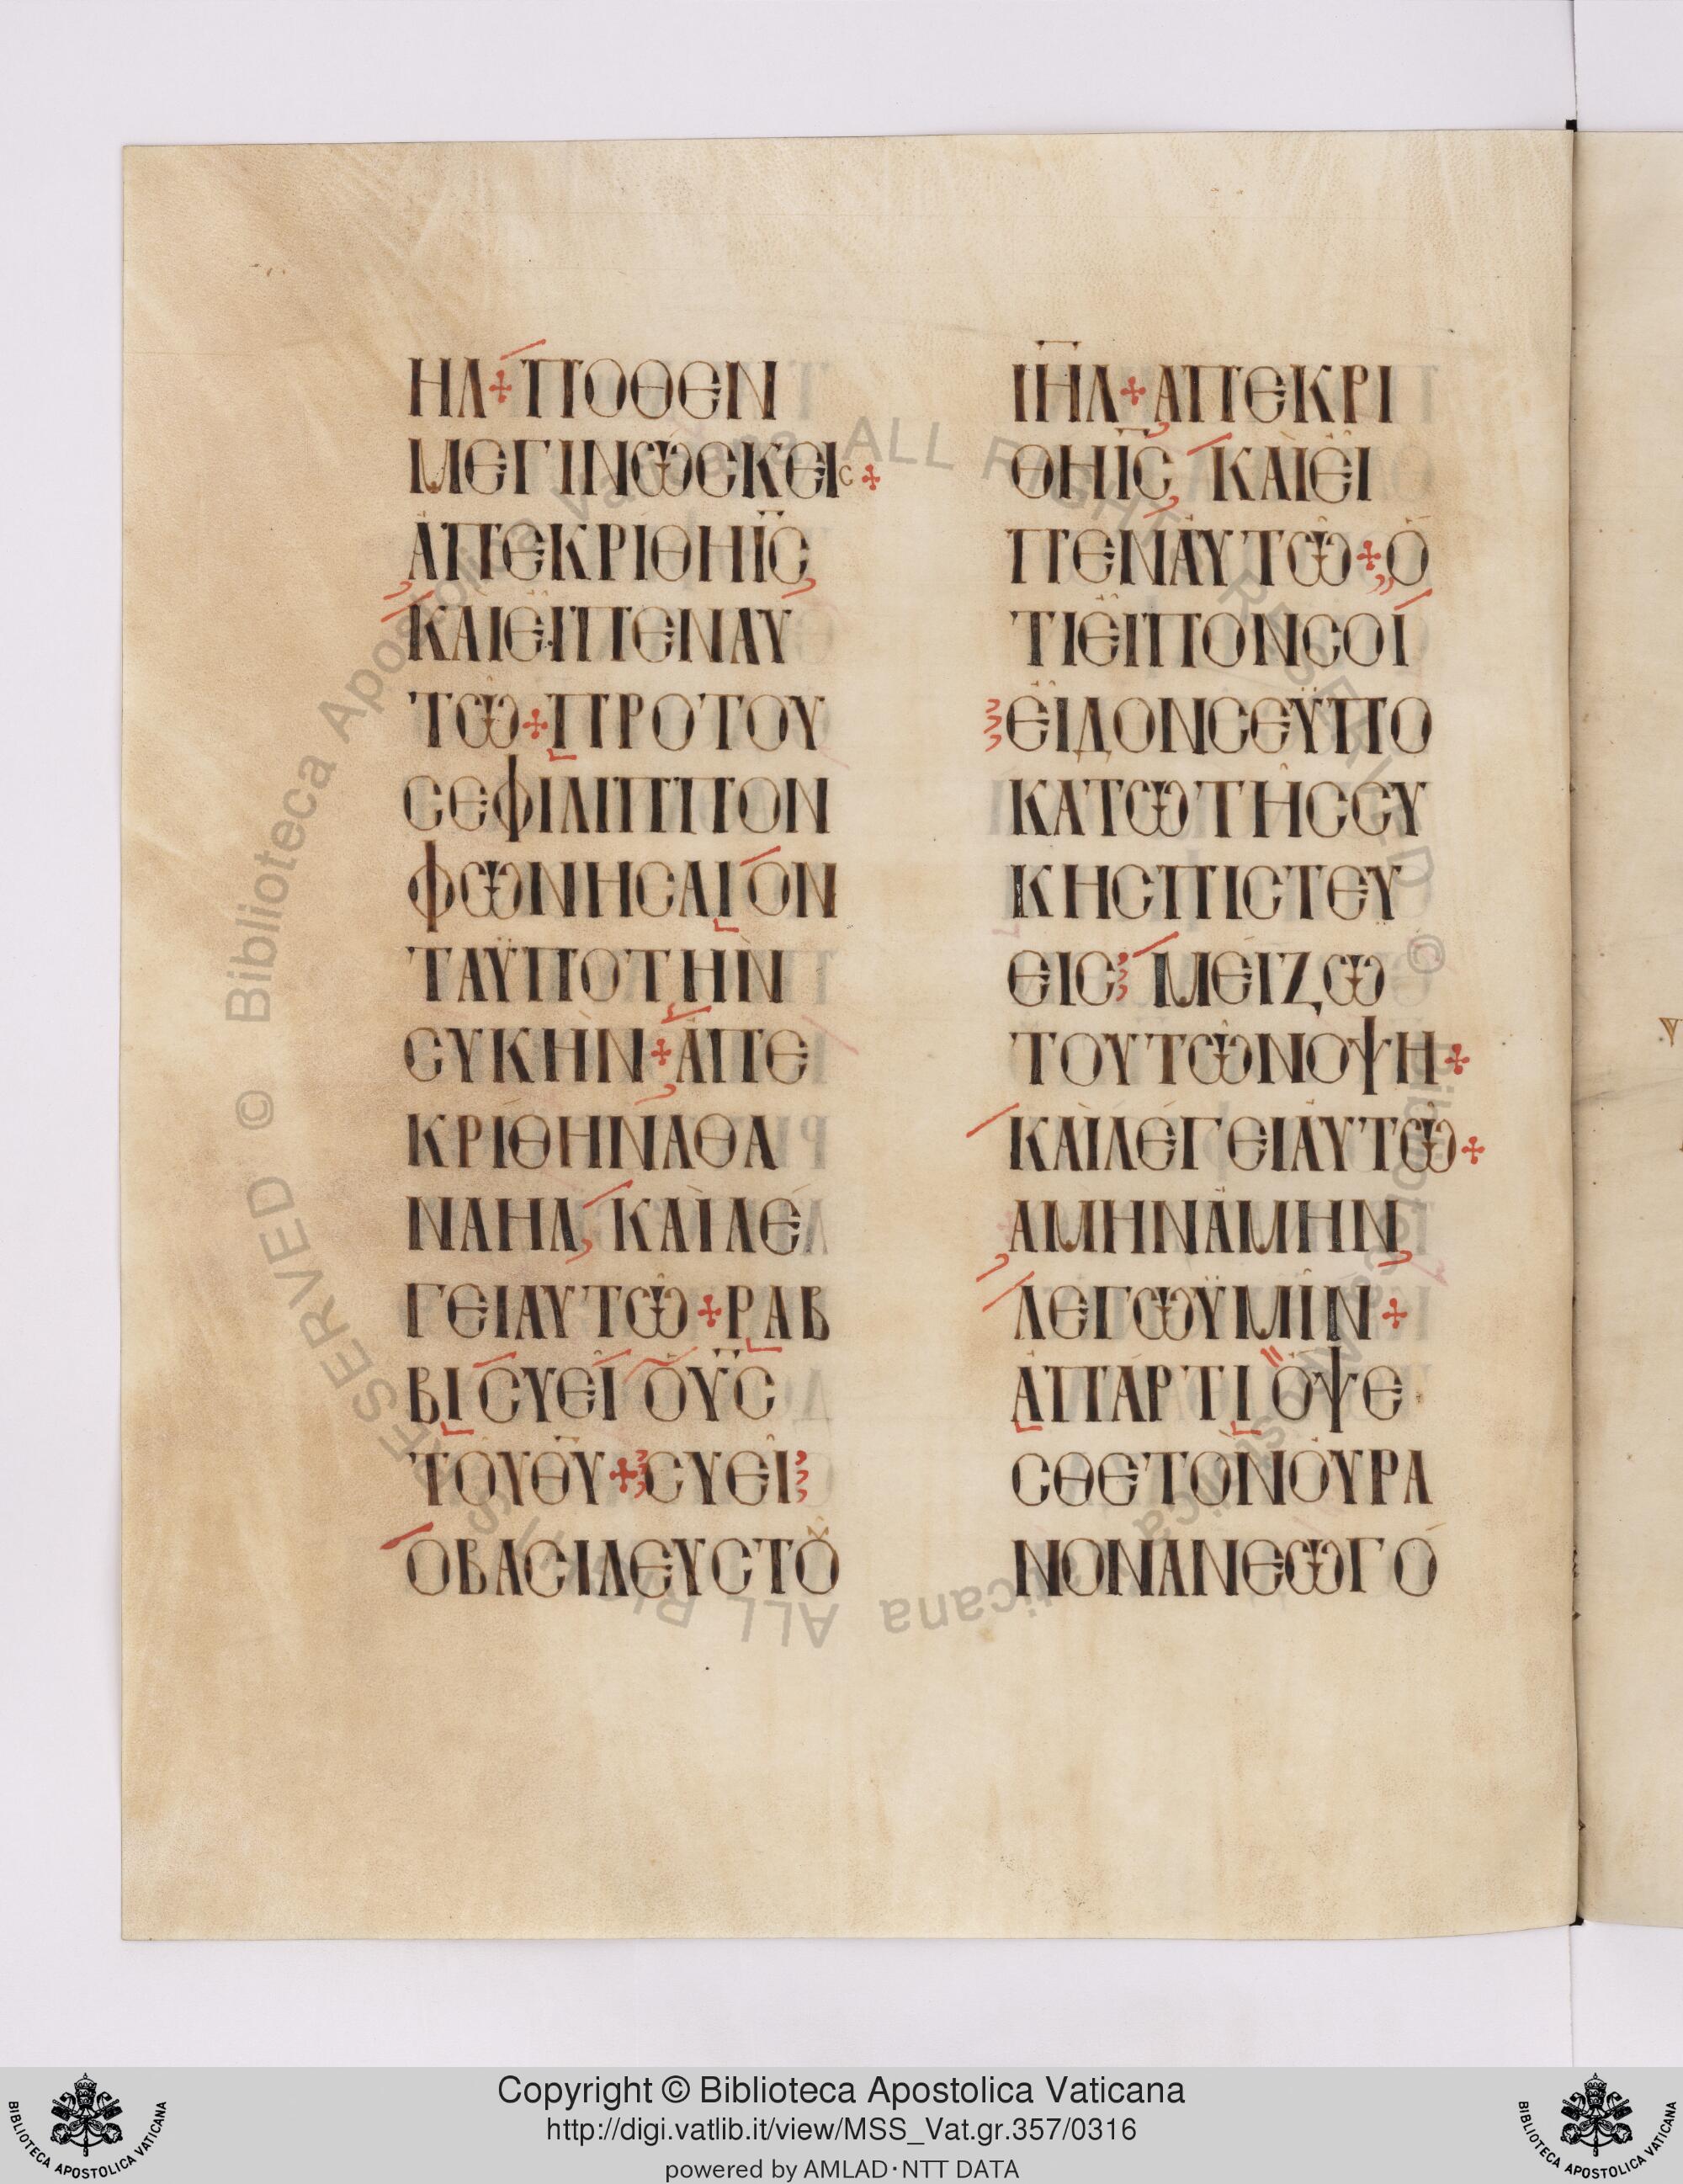 ΗΛ ΠΟΘΕΝ
ΜΕΓΙΝΩΣΚΕΙΣ
ΑΠΕΚΡΙΘΗΙ̅Σ̅
ΚΑΙΕΙΠΕΝΑΥ
ΤΩ ΠΡΟΤΟΥ
ΣΕΦΙΛΙΠΠΟΝ
ΦΩΝΗΣΑΙ ΟΝ
ΤΑΫΠΟΤΗΝ
ΣΥΚΗΝ ΑΠΕ
ΚΡΙΘΗΝΑΘΑ
ΝΑΗΛ ΚΑΙΛΕ
ΓΕΙΑΥΤΩ ΡΑΒ
ΒΙ ΣΥΕΙ ΟΥ̅Σ̅
ΤΟΥΘ̅Υ̅ ΣΥΕΙ
ΟΒΑΣΙΛΕΥΣΤΟΥ
Ι̅Η̅Λ̅ ΑΠΕΚΡΙ
ΘΗΙ̅Σ̅ ΚΑΙΕΙ
ΠΕΝΑΥΤΩ Ο
ΤΙΕΙΠΟΝΣΟΙ
ΕΙΔΟΝΣΕΫΠΟ
ΚΑΤΩΤΗΣΣΥ
ΚΗΣΠΙΣΤΕΥ
ΕΙΣ ΜΕΙΖΩ
ΤΟΥΤΩΝΟΨΗ
ΚΑΙΛΕΓΕΙΑΥΤΩ
ΑΜΗΝΑΜΗΝ
ΛΕΓΩΫΜΙΝ
ΑΠΑΡΤΙ ΟΨΕ
ΣΘΕΤΟΝΟΥΡΑ
ΝΟΝΑΝΕΩΓΟ
© Biblioteca Apostolica Vaticana ALL RIGHTS RESERVED © Biblioteca Apostolica Vaticana ALL RIGHTS RESERVED
Copyright © Biblioteca Apostolica Vaticana
http://digi.vatlib.it/view/MSS_Vat.gr.357/0316
powered by AMLAD·NTT DATA
BIBLIOTECA APOSTOLICA VATICANA
BIBLIOTECA APOSTOLICA VATICANA